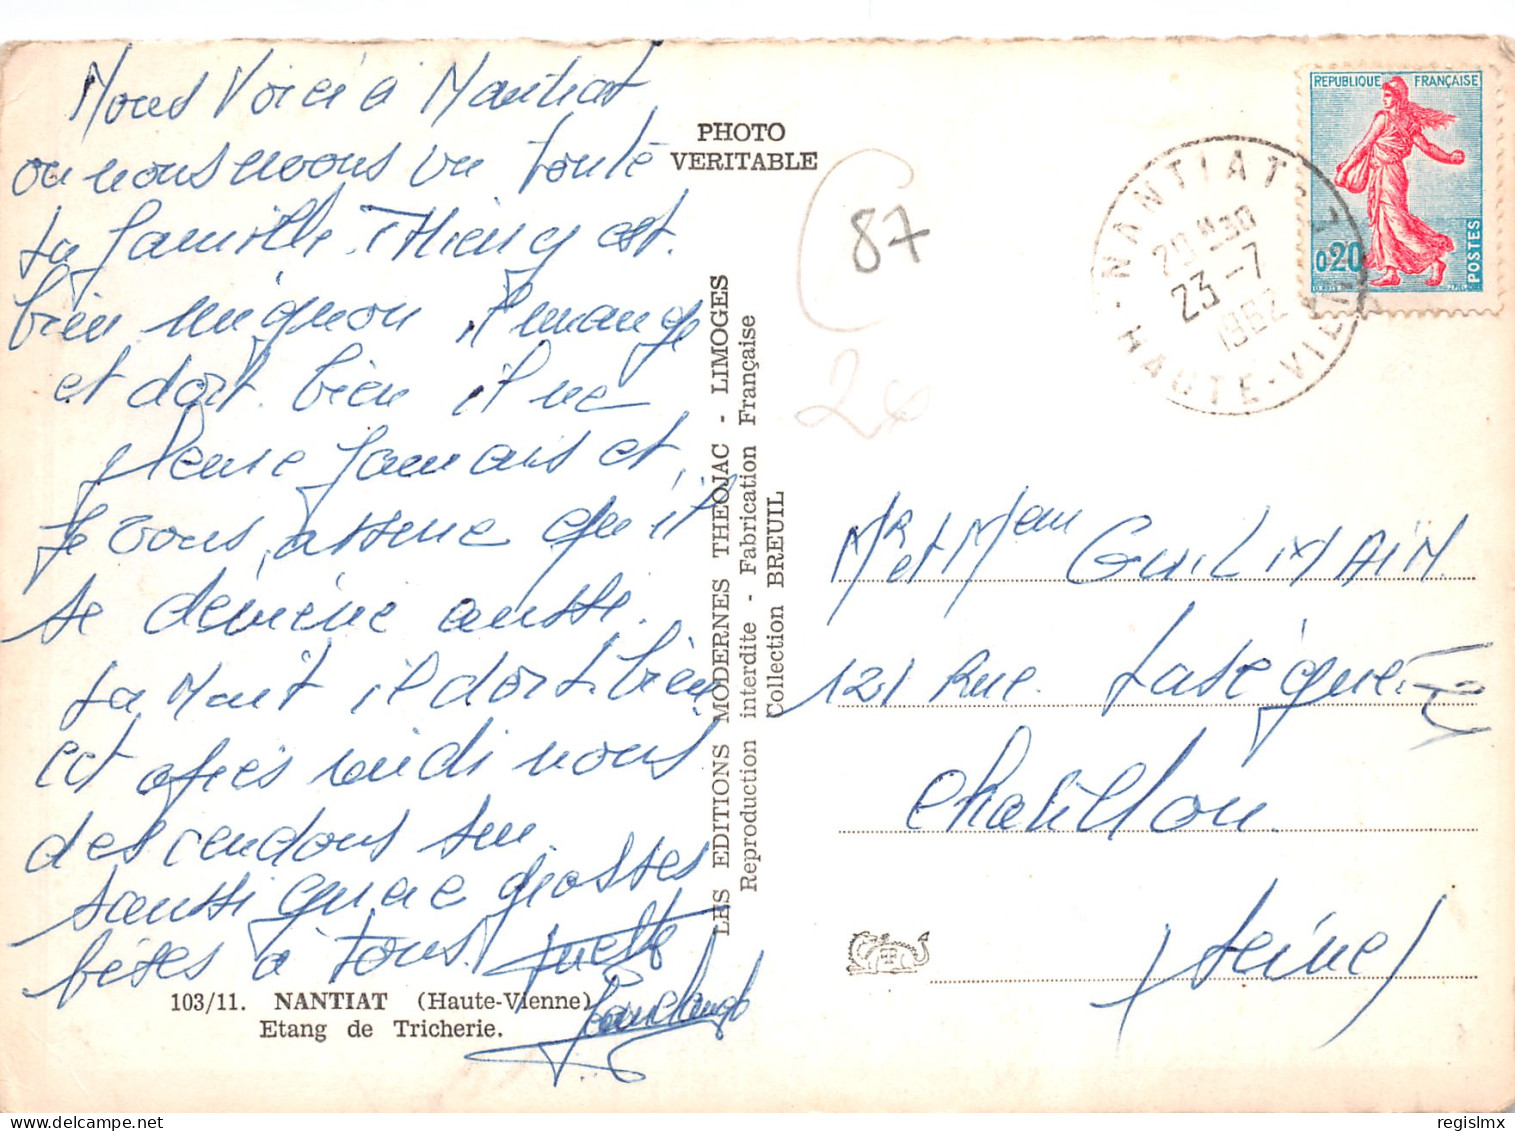 Nous Voici à Nantiat
ou nous avons vu toute
la famille. Thierry est.
bien mignon il mange
et dort. bien il ne
pleure jamais et
je vous assure qu'il
se démène aussi.
La Nuit il dort bien
et après midi nous
descendons sur
grosses
bises à tous.
103/11. NANTIAT (Haute-Vienne)
Etang de Tricherie.
PHOTO
VERITABLE
LES EDITIONS MODERNES THEOJAC - LIMOGES
Reproduction interdite - Fabrication Française
Collection BREUIL
87
REPUBLIQUE FRANÇAISE
0,20
POSTES
NANTIAT
20H30
23-7
1962
HAUTE-VIENNE
Mr et Mme GUILMAIN
121 Rue. Laségue.
Chatillon.
(Seine)
regislmx